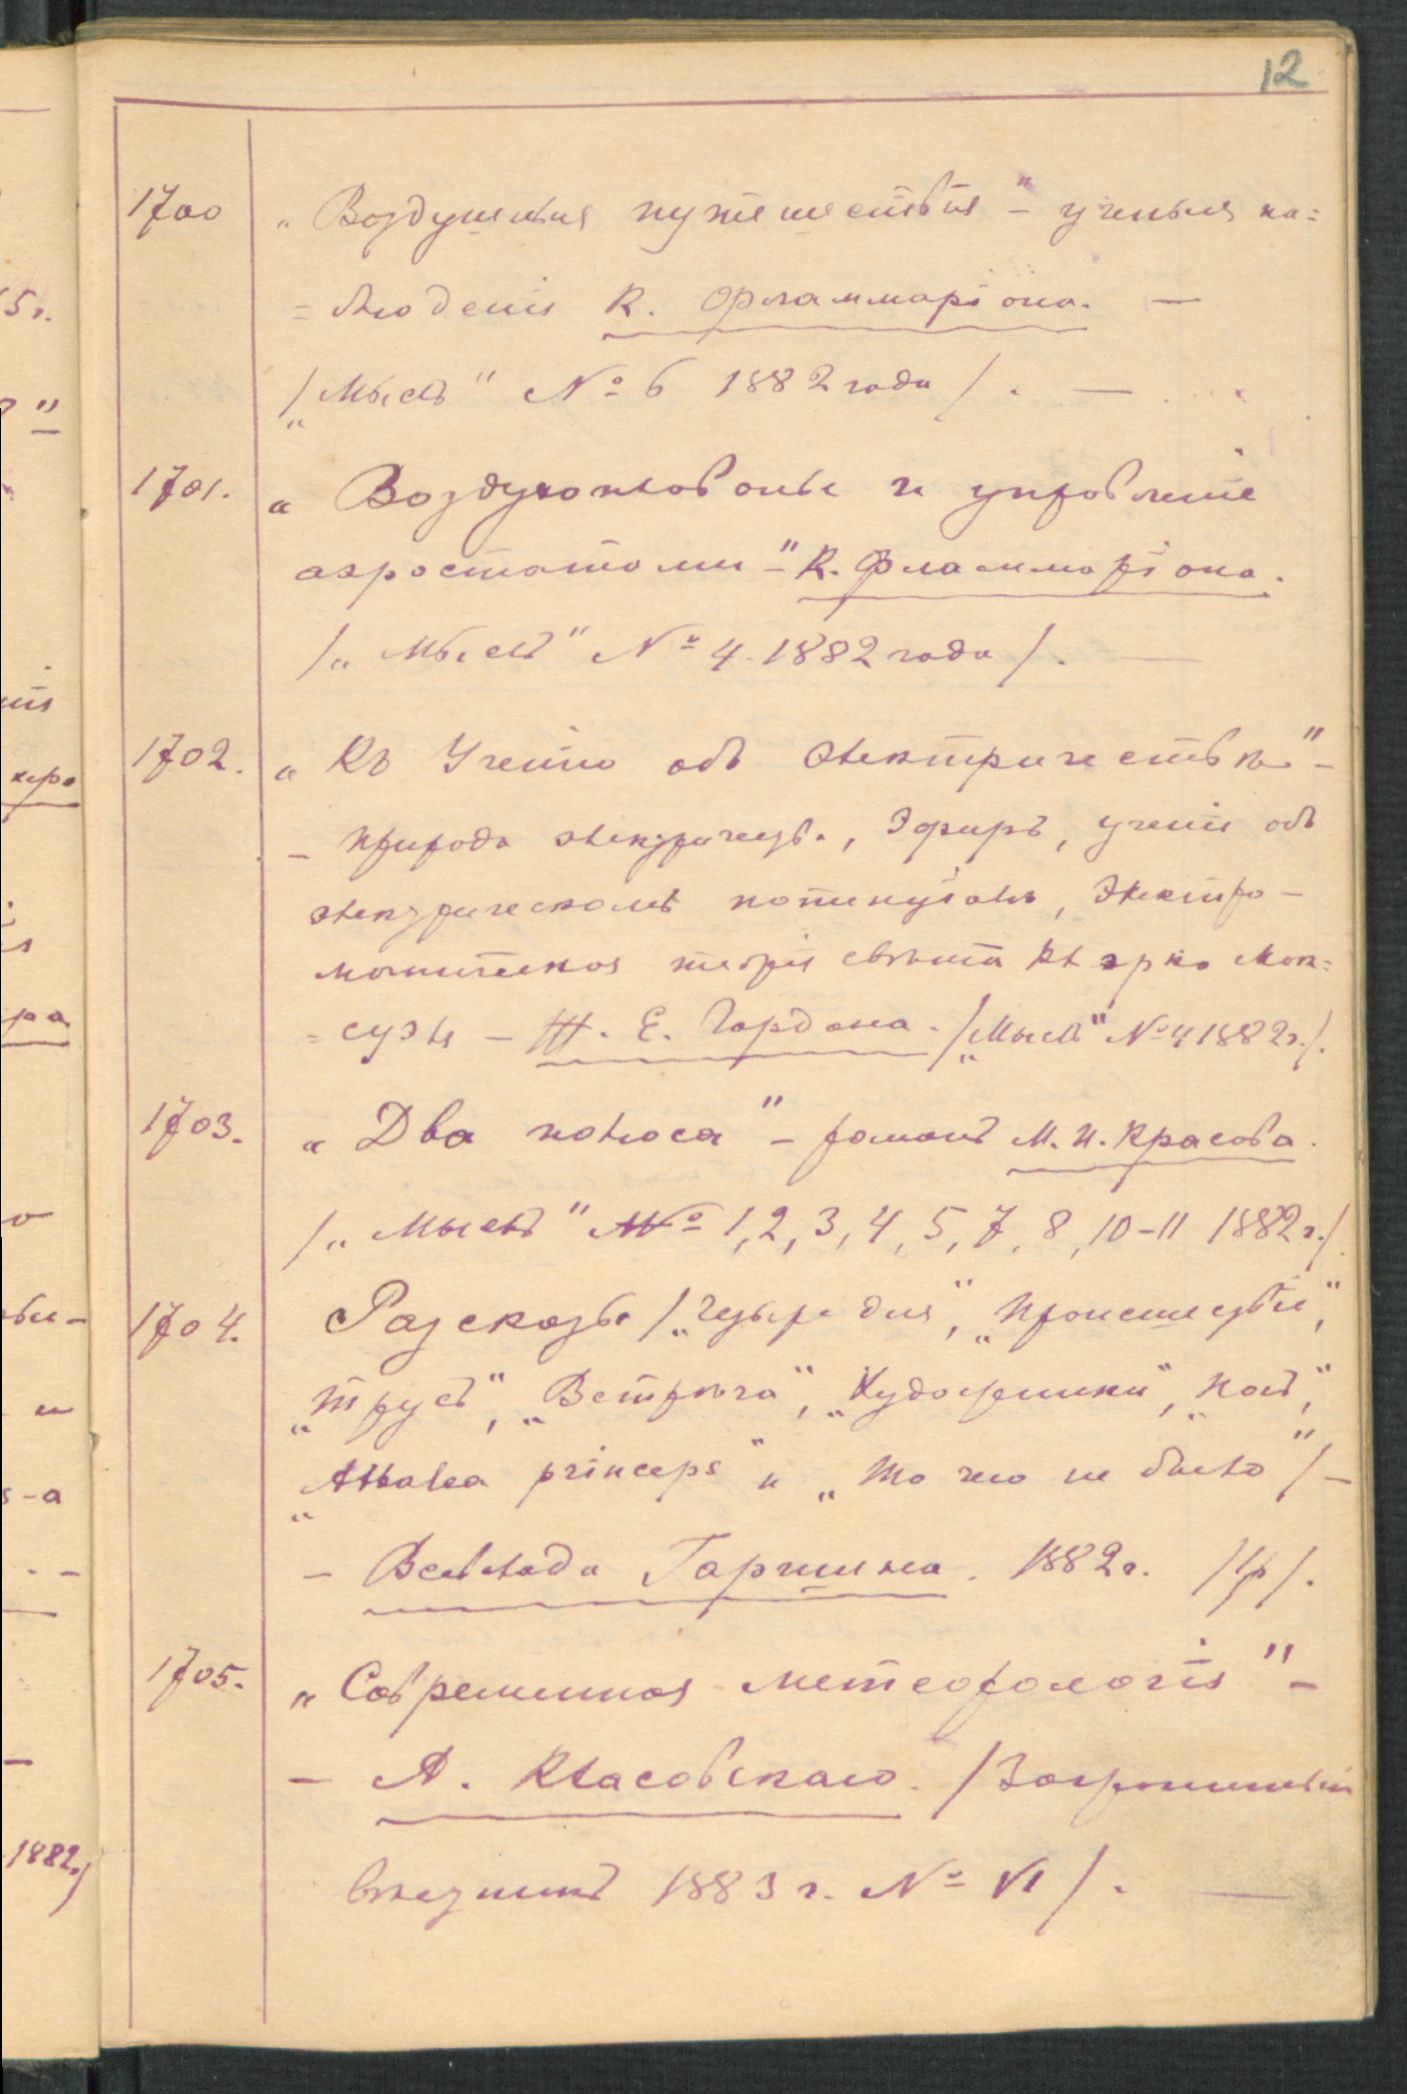 12
1700 „Воздушныя путешествія" – ученыя на=
=блюденія К. Фламмаріона. —
/„Мысль" № 6 1882 года/. —
1701. „Воздухоплованье и управленіе
аэростатами" – К. Фламмаріона.
/„Мысль" № 4 1882 года/. —
1702. „Къ Ученію объ Электричествѣ" –
– природа электричества, Эфиръ, ученіе объ
электрическомъ потенціалѣ, Электро–
магнитная теорія свѣта Клэрка Мак=
=суэля – Ж. Е. Гордона. /„Мысль" № 4 1882 г./.
1703. „Два полюса" – романъ М. И. Красова.
/„Мысль" №№ 1, 2, 3, 4, 5, 7, 8, 10–11 1882 г./.
1704. Разсказы /„Четыре дня", „Происшествіе",
„Трусъ", „Встрѣча", „Художники", „Ночь",
„Attalea princeps" и „То чего не было"/ –
– Всеволода Гаршина. 1882 г. /
1705. „Современная метеорологія" –
– А. Класовскаго. /Заграничный
вѣстникъ 1883 г. № VI/. —
15 г.
"
ра
и
s-a
1882 г./